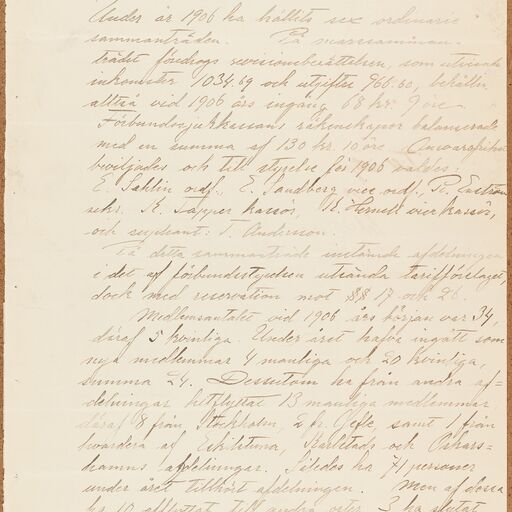 Under år 1906 ha hållits sex ordinarie
sammanträden. På marssamman-
trädet föredrogs revisionsberättelsen, som utvisade
inkomster 1034.69 och utgifter 966.60, behålln.
alltså vid 1906 års ingång 68 kr 9 öre
Förbundssjukkassans räkenskaper balanserade
med en summa af 130 kr. 10 öre. Ansvarsfrihet
beviljades och till styrelse för 1906 valdes:
E. Sahlin ordf., E. Sandberg vice ordf., R. Enström
sekr. K. Tapper kassör, K. vice kassör,
och suppleant: T. Andersson.
På detta sammanträde instämde afdelningen
i det af förbundsstyrelsen utsända tarifförslaget,
dock med reservation mot §§ 17 och 26.
Medlemsantalet vid 1906 års början var 34,
däraf 5 kvinliga. Under året hafva ingått som
nya medlemmar 4 manliga och 20 kvinliga,
summa 24. Dessutom ha från andra af-
delningar hitflyttat 13 manliga medlemmar
däraf 8 från Stockholm, 2 fr. Gefle, samt 1 från
hvardera af Eskilstuna, Karlstads och Oskars-
hamns afdelningar. Således ha 71 personer
under året tillhört afdelningen. Men af dessa
ha 10 afflyttat till andra orter, 3 ha slutat